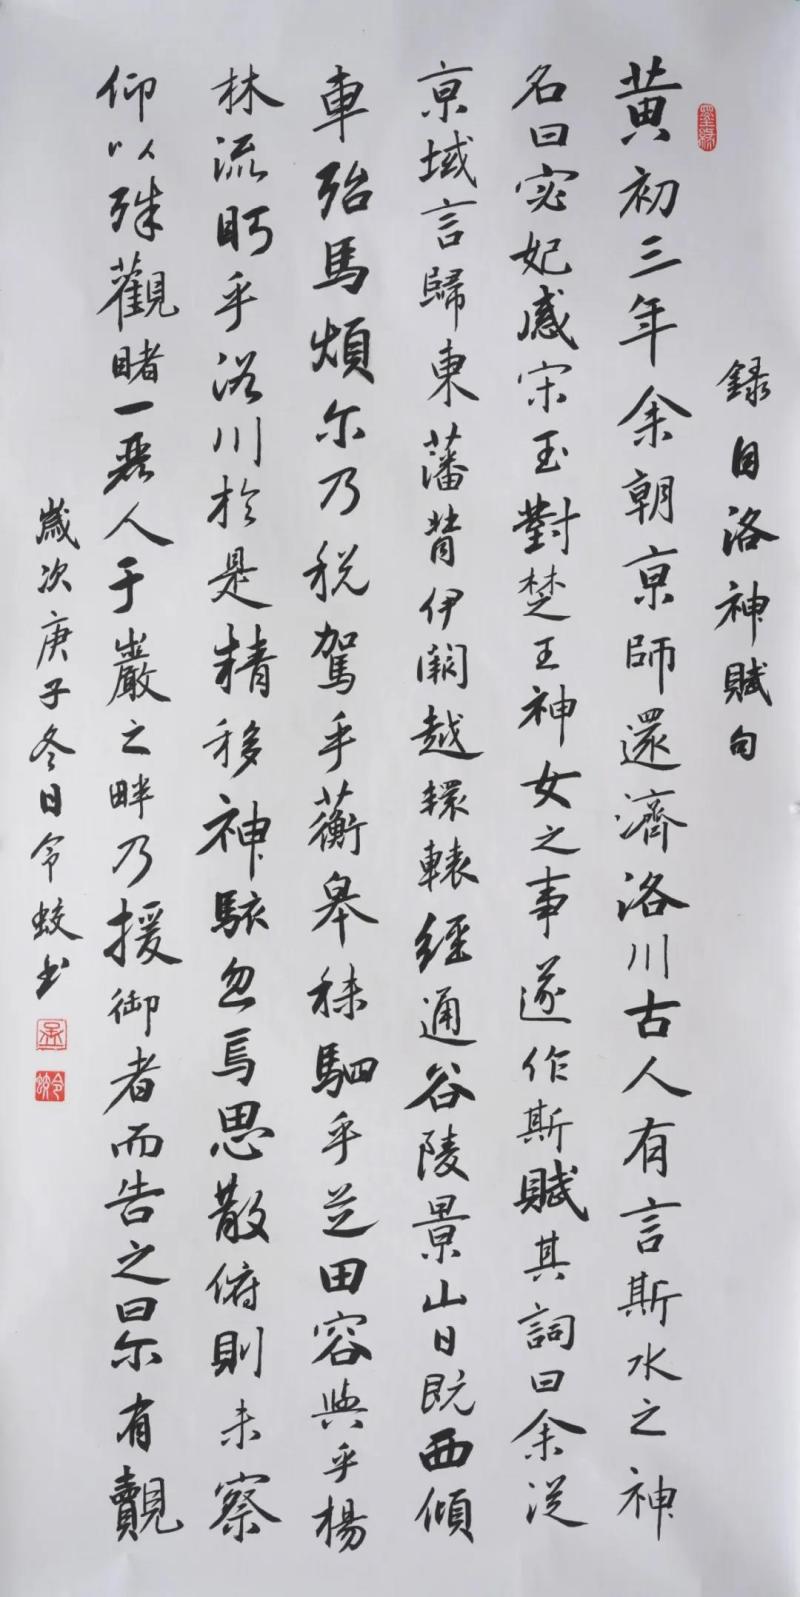 錄自洛神賦句
黃初三年余朝京師還濟洛川古人有言斯水之神
名曰宓妃感宋玉對楚王神女之事遂作斯賦其詞曰余從
京域言歸東藩背伊闕越轘轅經通谷陵景山日既西傾
車殆馬煩尔乃税駕乎蘅皋秣駟乎芝田容與乎楊
林流眄乎洛川於是精移神駭忽焉思散俯則未察
仰以殊觀睹一麗人于巖之畔乃援御者而告之曰尔有覿
歲次庚子冬日令蛟书